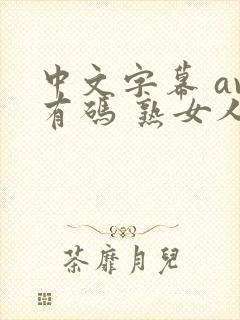 中文字幕 av
有碼 熟女人
茶靡月兒